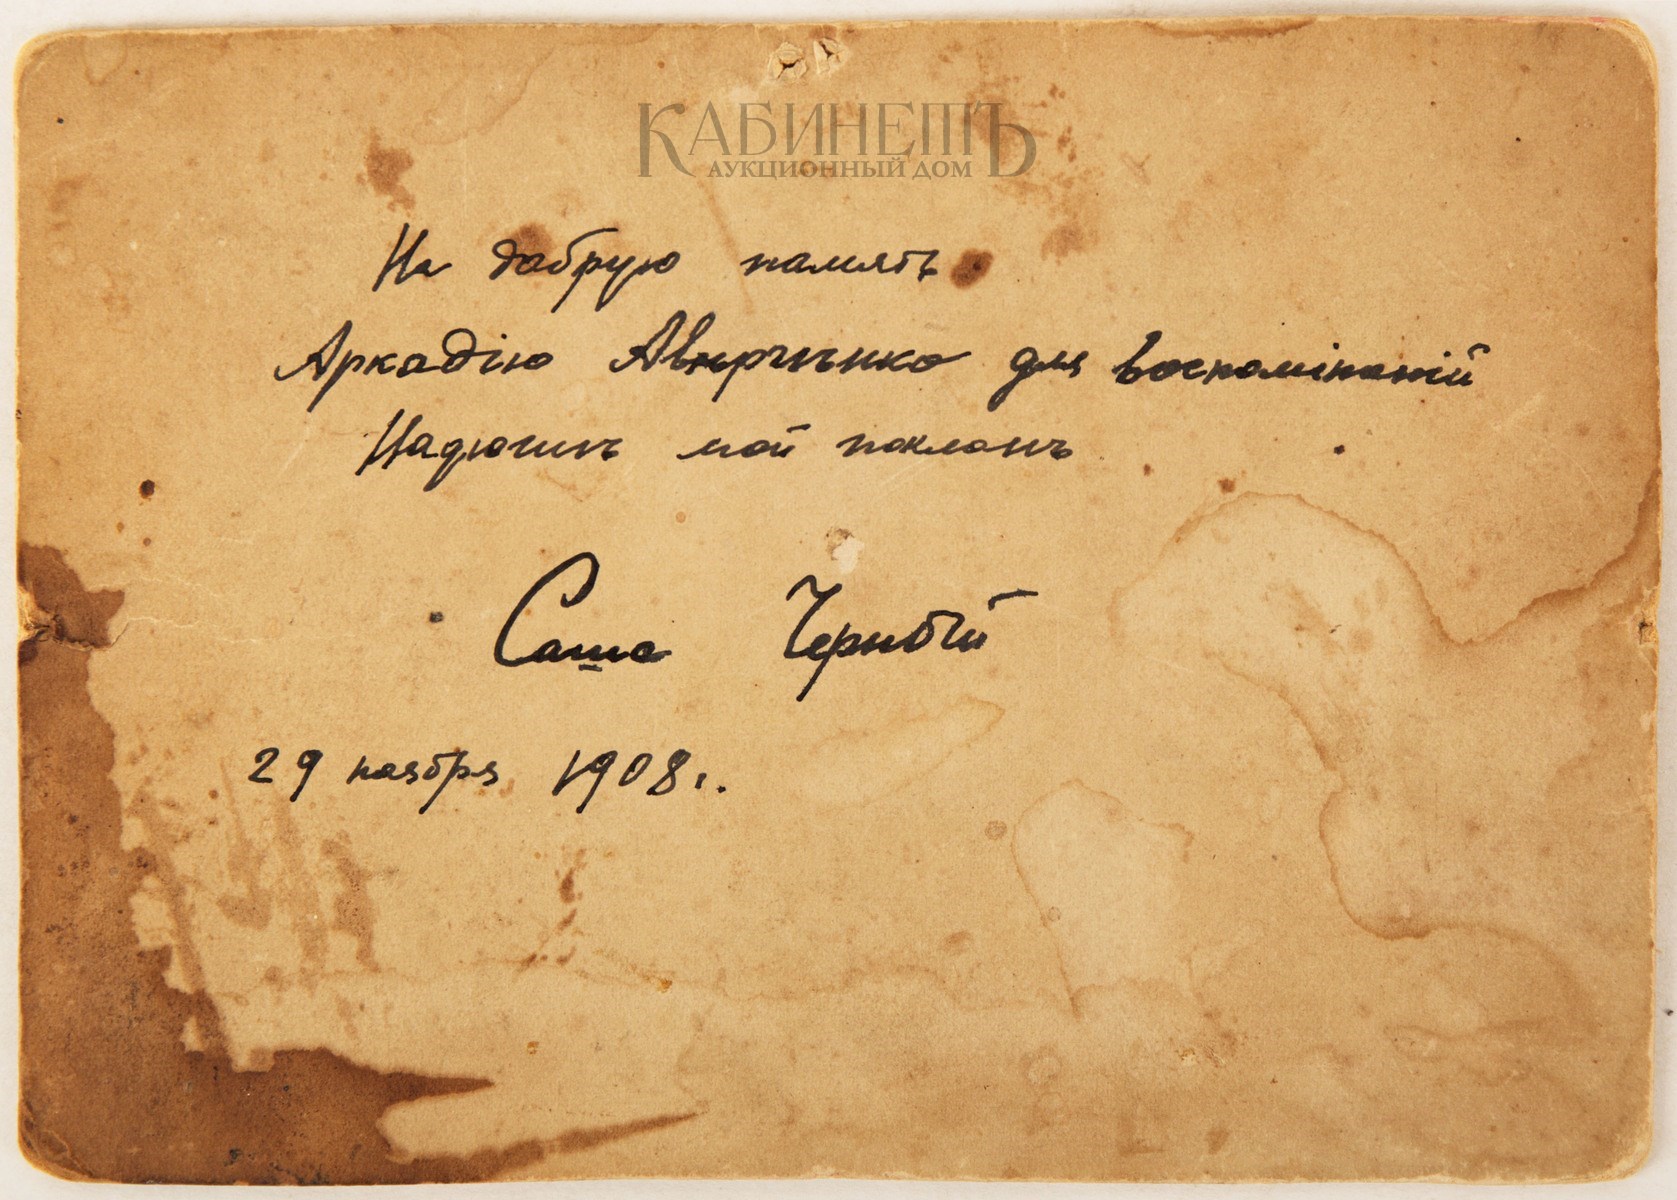 КАБИНЕТЪ
АУКЦИОННЫЙ ДОМ
На добрую память
Аркадію Аверченко для воспомінаній
мой поклонъ
Саша Черный
29 ноября 1908 г.